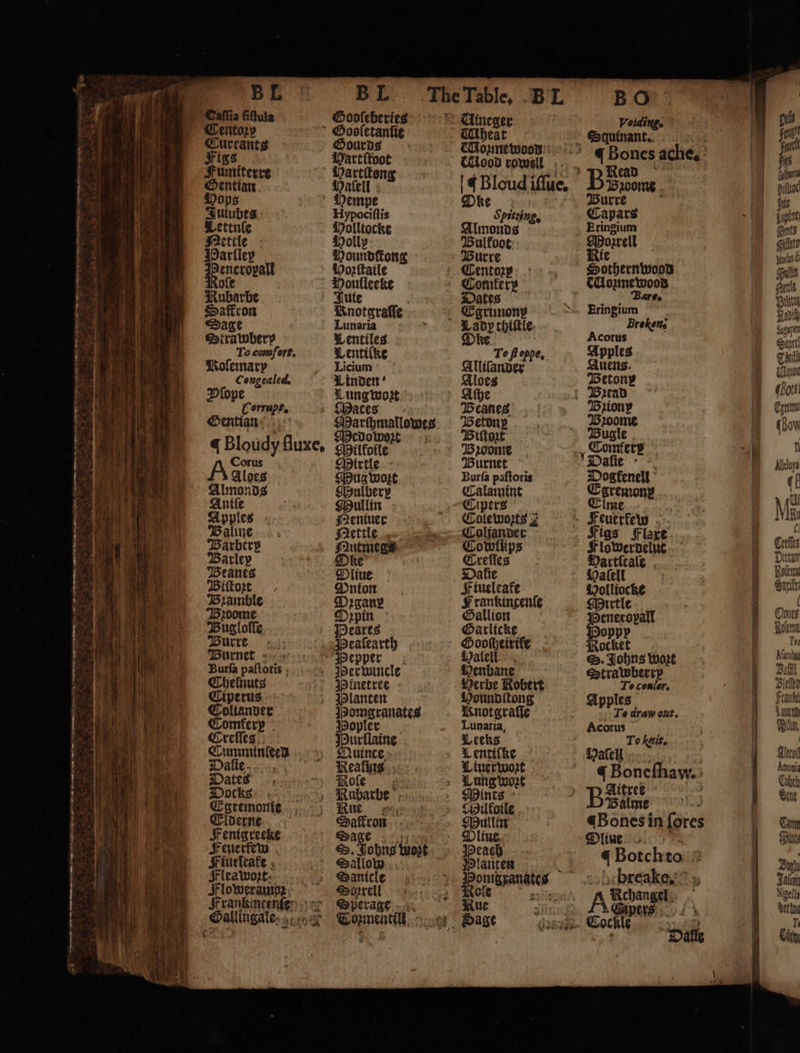 BL BL The Table, BL BO
Cassia fistula
Centory
Currants
Figs
Fumiterre
Gentian
Hops
Iuiubes
Lettuse
Nettle
Parsley
Peneroyall
Rose
Rubarbe
Saffron
Sage
Strawbery
To comfort.
Rosemary
Congealed.
Ysope
Corrupt.
Gentian
¶ Bloudy fluxe,
ACorus
Aloes
Almonds
Anise
Apples
Balme
Barbery
Barley
Beanes
Bistort
Bramble
Broome
Buglosse
Burre
Burnet
Bursa pastoris
Chesnuts
Ciperus
Coliander
Comfery
Cresses
Cumminseed
Dasie
Dates
Docks
Egremonie
Elderne
Fenigreeke
Feuerfew
Fiueleafe
Fleawort
Floweramor
Frankincense
Gallingale
Gooseberies
Goosetansie
Gourds
Hartsfoot
Hartstong
Hasell
Hempe
Hypocistis
Holliocke
Holly
Houndstong
Horstaile
Housleeke
Iuie
Knotgrasse
Lunaria
Lentiles
Lentiske
Licium
Linden
Lungwort
Maces
Marshmallowes
Medowort
Milfoile
Mirtle
Mugwort
Mulbery
Mullin
Neniuer
Nettle
Nutmegs
Oke
Oliue
Onion
Organy
Orpin
Peares
Peasearth
Pepper
Perwincle
Pinetree
Planten
Pomgranates
Popler
Purslaine
Quince
Reasins
Rose
Rubarbe
Rue
Saffron
Sage
S. Johns wort
Sallow
Sanicle
Sorrell
Sperage
Tormentill
Vineger
Wheat
Wormewood
Wood rowell
¶ Bloud issue.
Oke
Spitting.
Almonds
Bulfoot
Burre
Centory
Comfery
Dates
Egrimony
Lady thistle
Oke
To stoppe.
Allisander
Aloes
Ashe
Beanes
Betony
Bistort
Broome
Burnet
Bursa pastoris
Calamint
Cipers
Coleworts
Coliander
Cowslips
Cresses
Dasie
Fiueleafe
Frankincense
Gallion
Garlicke
Goosheirife
Hasell
Henbane
Herbe Robert
Houndstong
Knotgrasse
Lunaria,
Leeks
Lentiske
Liuerwort
Lungwort
Mints
Milfoile
Mullin
Oliue
Peach
Planten
Pomigranates
Rose
Rue
Sage
Voiding.
Squinant.
¶ Bones ache.
BRead
Broome
Burre
Capars
Eringium
Morrell
Rie
Sothernwood
Wormewood
Bare.
Eringium
Broken.
Acorus
Apples
Auens.
Betony
Bread
Briony
Broome
Bugle
Comfery
Dasie
Dogfenell
Egremony
Elme
Feuerfew
Figs Flaxe
Flowerdeluc
Hartseale
Hasell
Holliocke
Mirtle
Peneroyall
Poppy
Rocket
S. Johns wort
Strawberry
To consler.
Apples
To draw out.
Acorus
To knit.
Hasell
¶ Boneshaw.
BAitree
Balme
¶ Bones in sores
Oliue
¶ Botch to
breake.
ARchangel
Cipers
Cockle
Dasie